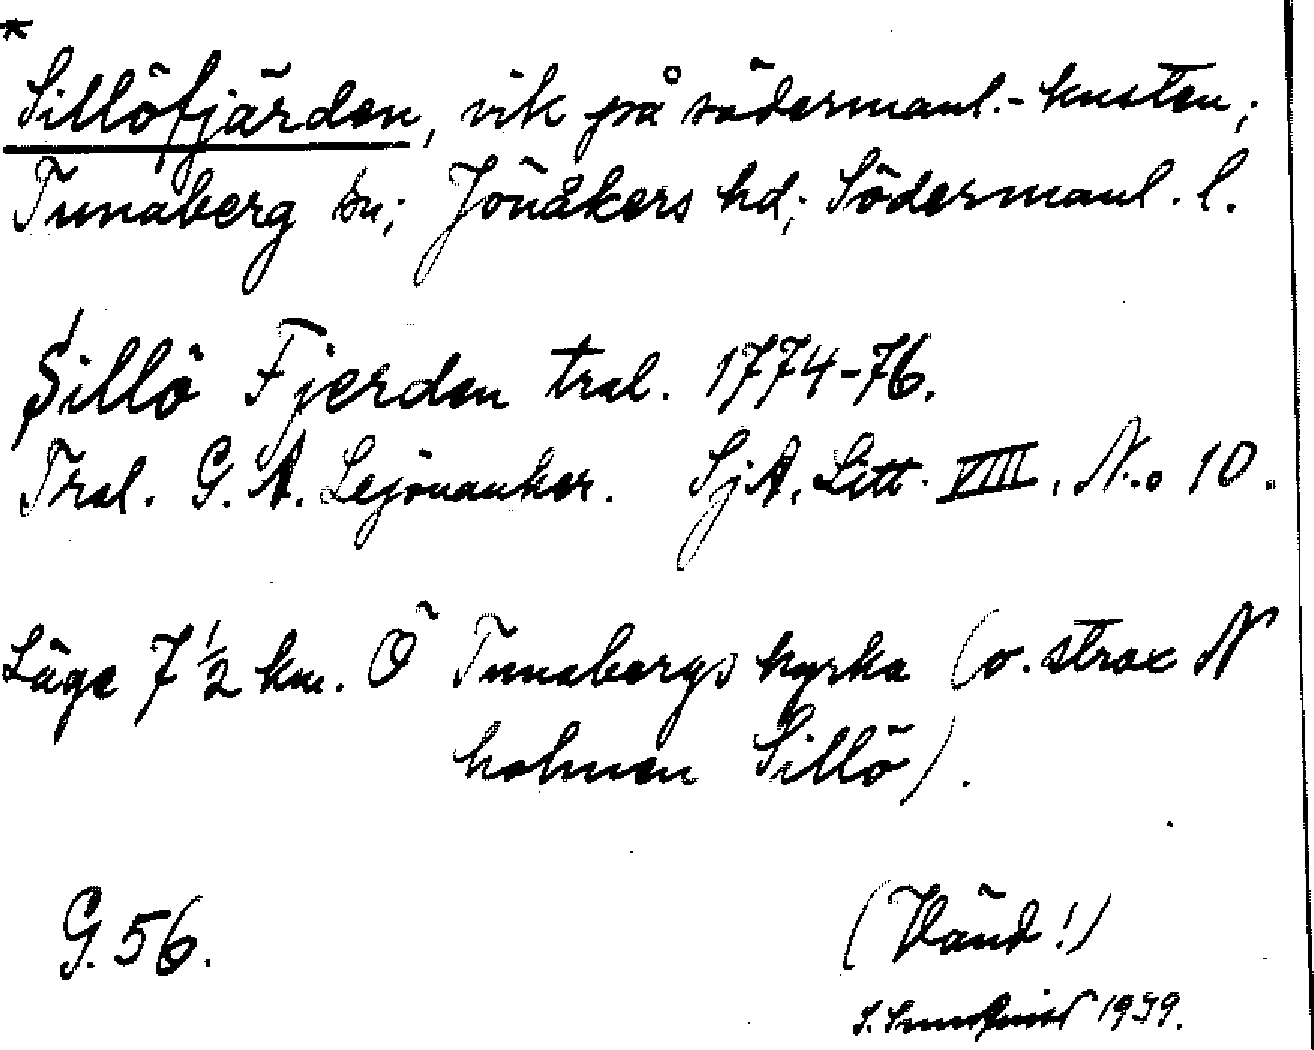 *
Sillöfjärden, vik på södermanl.-kusten;
Tunaberg sn; Jönåkers hd; Södermanl. l.
Sillö Fjerden tral. 1774-76.
Tral. G. A. Lejonanker. SjA. Litt. VIII. N.o 10.
Läge 7 1/2 km. Ö Tunabergs kyrka (o. strax N
holmen Sillö).
G. 56.
(Vänd!)
1939.